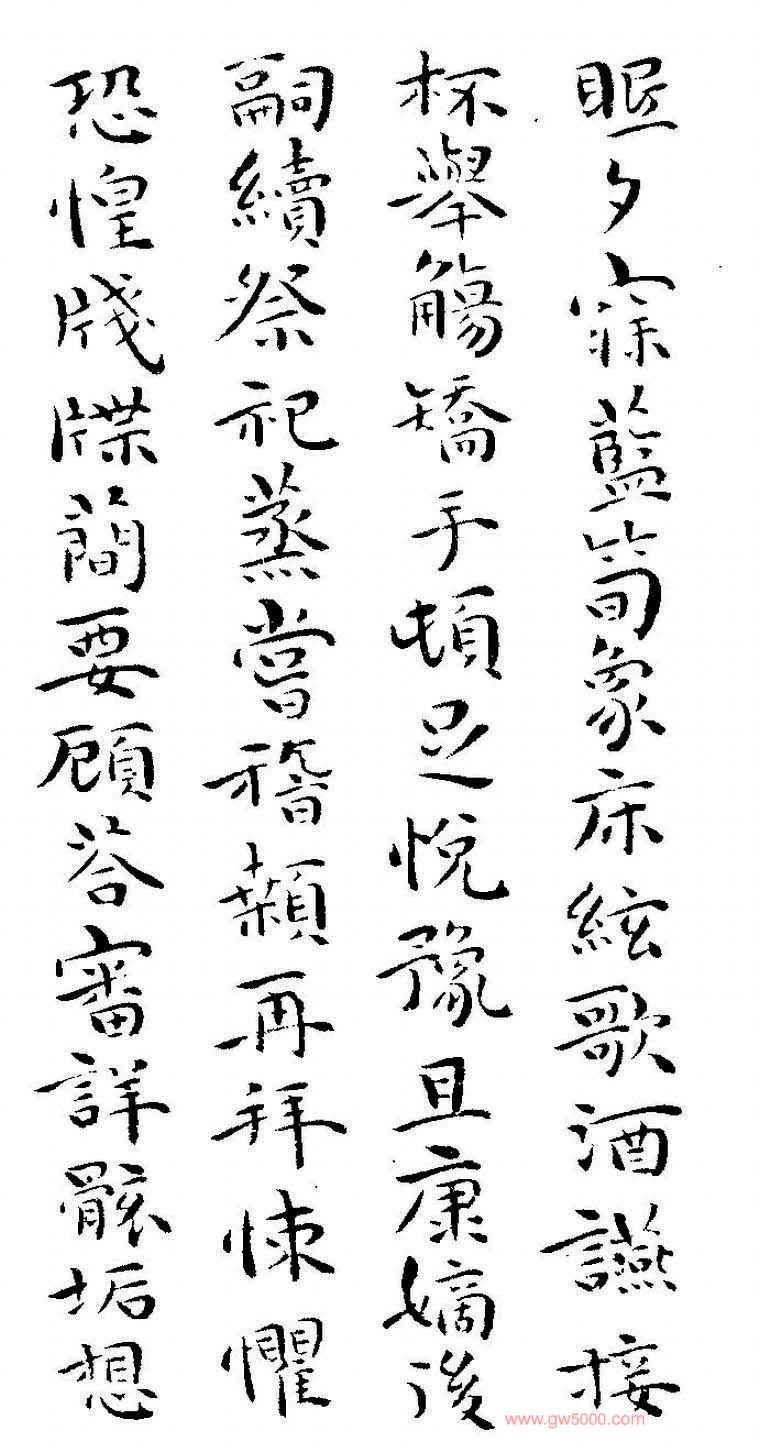 眠夕寐藍筍象床絃歌酒讌接
杯舉觴矯手頓足悅豫且康嫡後
嗣續祭祀蒸嘗稽顙再拜悚懼
恐惶牋牒簡要顧答審詳骸垢想
www.gw5000.com